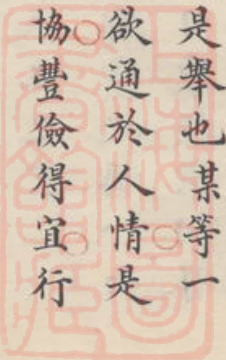 是舉也某等一
欲通於人情是
協豐儉得宜行